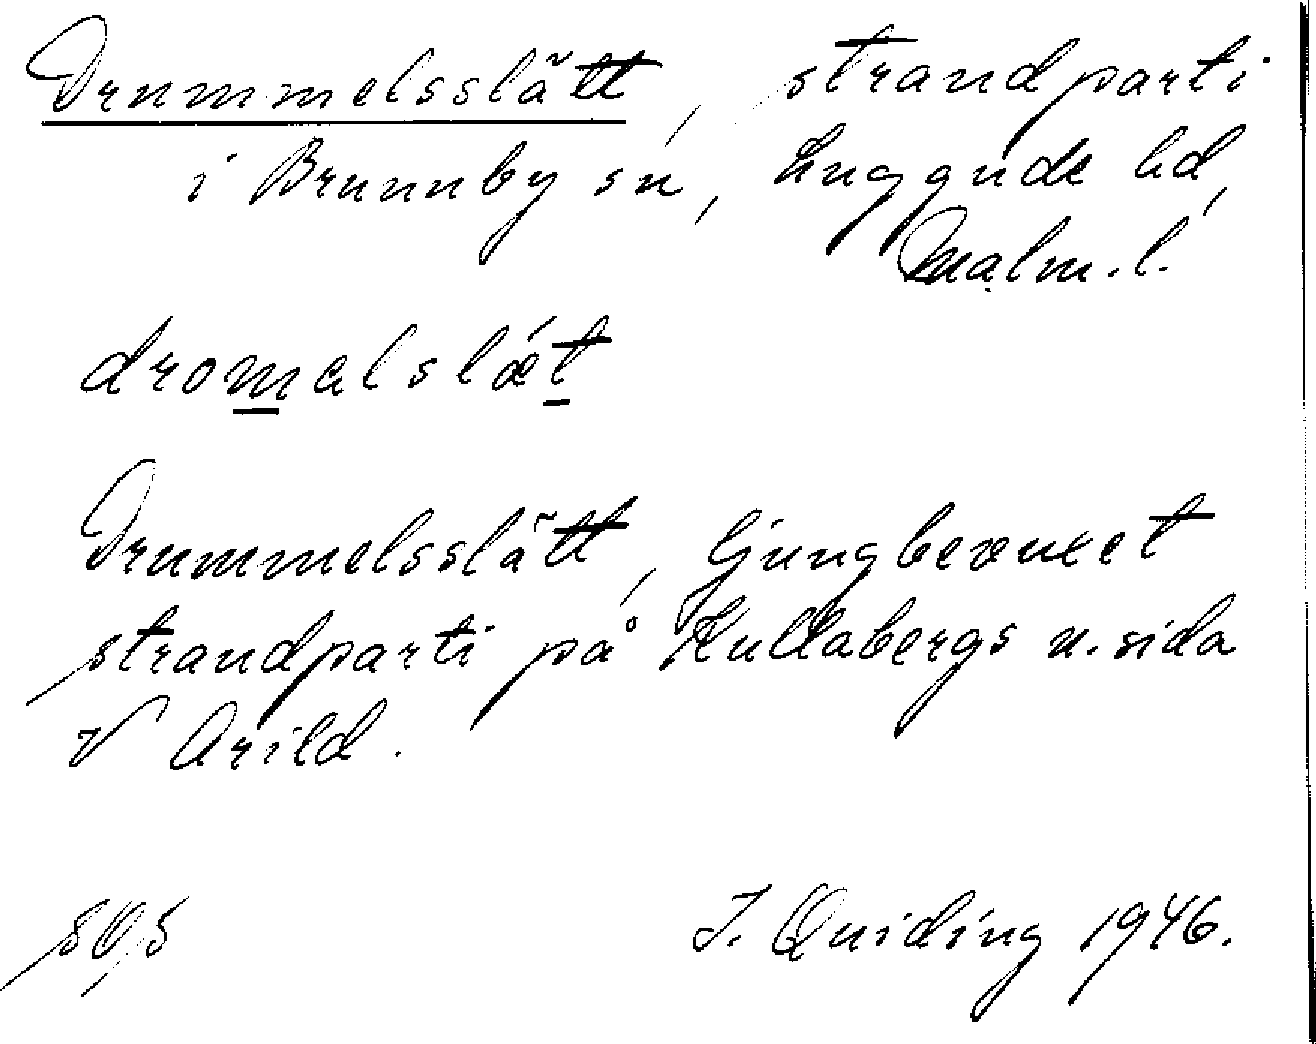 Drummelsslätt, strandparti
i Brunnby sn, Luggude hd,
Malm.l.
dromalslǽt
Drummelsslätt, ljungbevuxet
strandparti på Kullabergs n.sida
V Arild.
I. Quiding 1946.